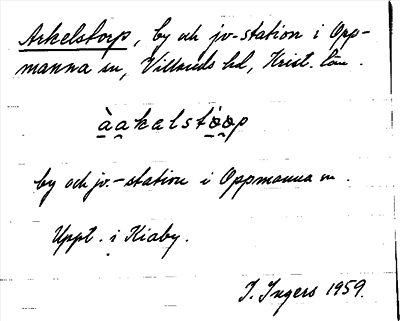 Arkelstorp, by och jv-station i Opp-
manna sn, Villands hd, Krist. län.
àa̯kalstòo̯p
by och jv.-station i Oppmanna sn.
Uppt. i Kiaby.
I. Ingers 1959.